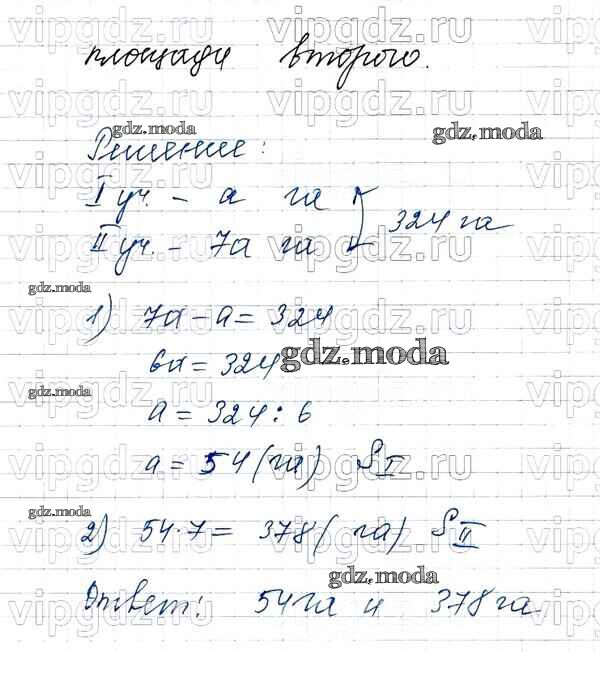 площади второго.
Решение:
I уч. - а га
II уч. - 7а га
324 га
1) 7а - а = 324
6а = 324
а = 324 : 6
а = 54 (га) S I
2) 54 · 7 = 378 (га) S II
Ответ: 54 га и 378 га
vipgdz.ru
gdz.moda